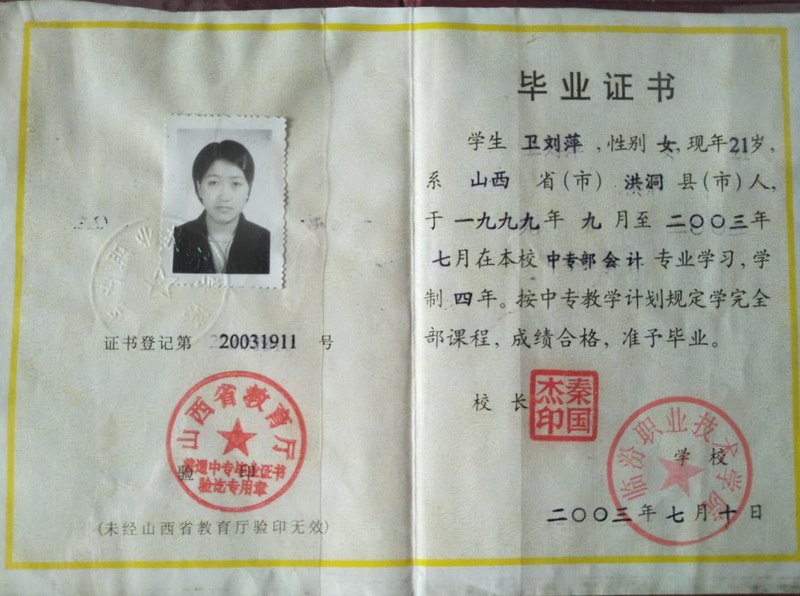 证书登记第 20031911 号
山西省教育厅
普通中专毕业证书
验讫专用章
验印
(未经山西省教育厅验印无效)
毕业证书
学生 卫刘萍，性别 女，现年21岁，
系 山西 省(市) 洪洞 县(市)人，
于一九九九年 九 月至 二〇〇三年
七月在本校 中专部会计 专业学习，学
制 四 年。按中专教学计划规定学完全
部课程，成绩合格，准予毕业。
校 长
秦国杰印
临汾职业技术学院
学 校
二〇〇三年 七 月 十 日